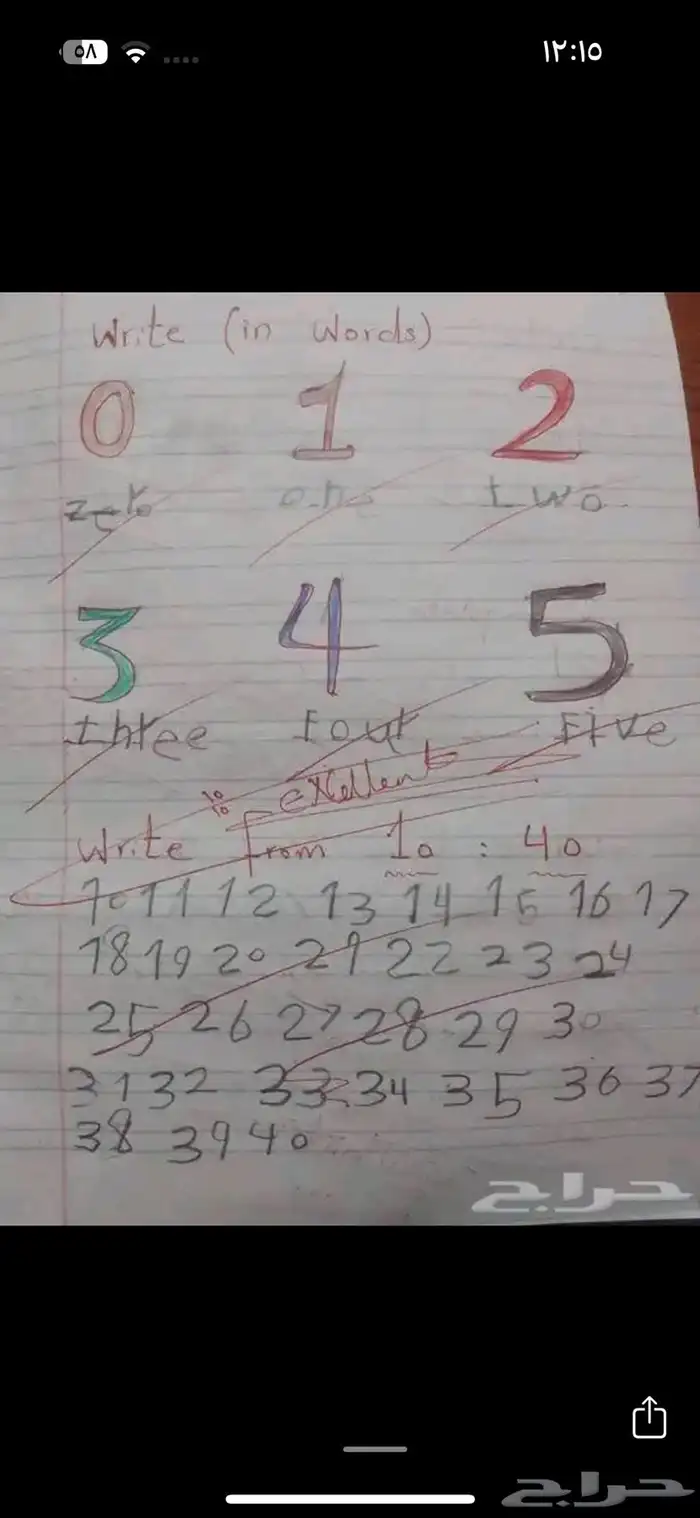 ٥٨
١٢:١٥
Write (in words)
0 1 2
zero one two
3 4 5
three four five
10/10 exellent
Write from 10 : 40
10 11 12 13 14 15 16 17
18 19 20 21 22 23 24
25 26 27 28 29 30
31 32 33 34 35 36 37
38 39 40
حراج
حراج